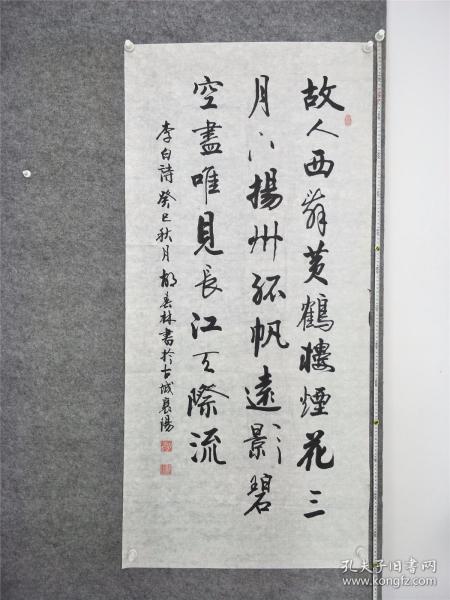 故人西辞黄鶴樓煙花三
月下揚州孤帆遠影碧
空盡唯見長江天際流
李白詩癸巳秋月胡春林書於古城襄陽
孔夫子旧书网
www.kongfz.com